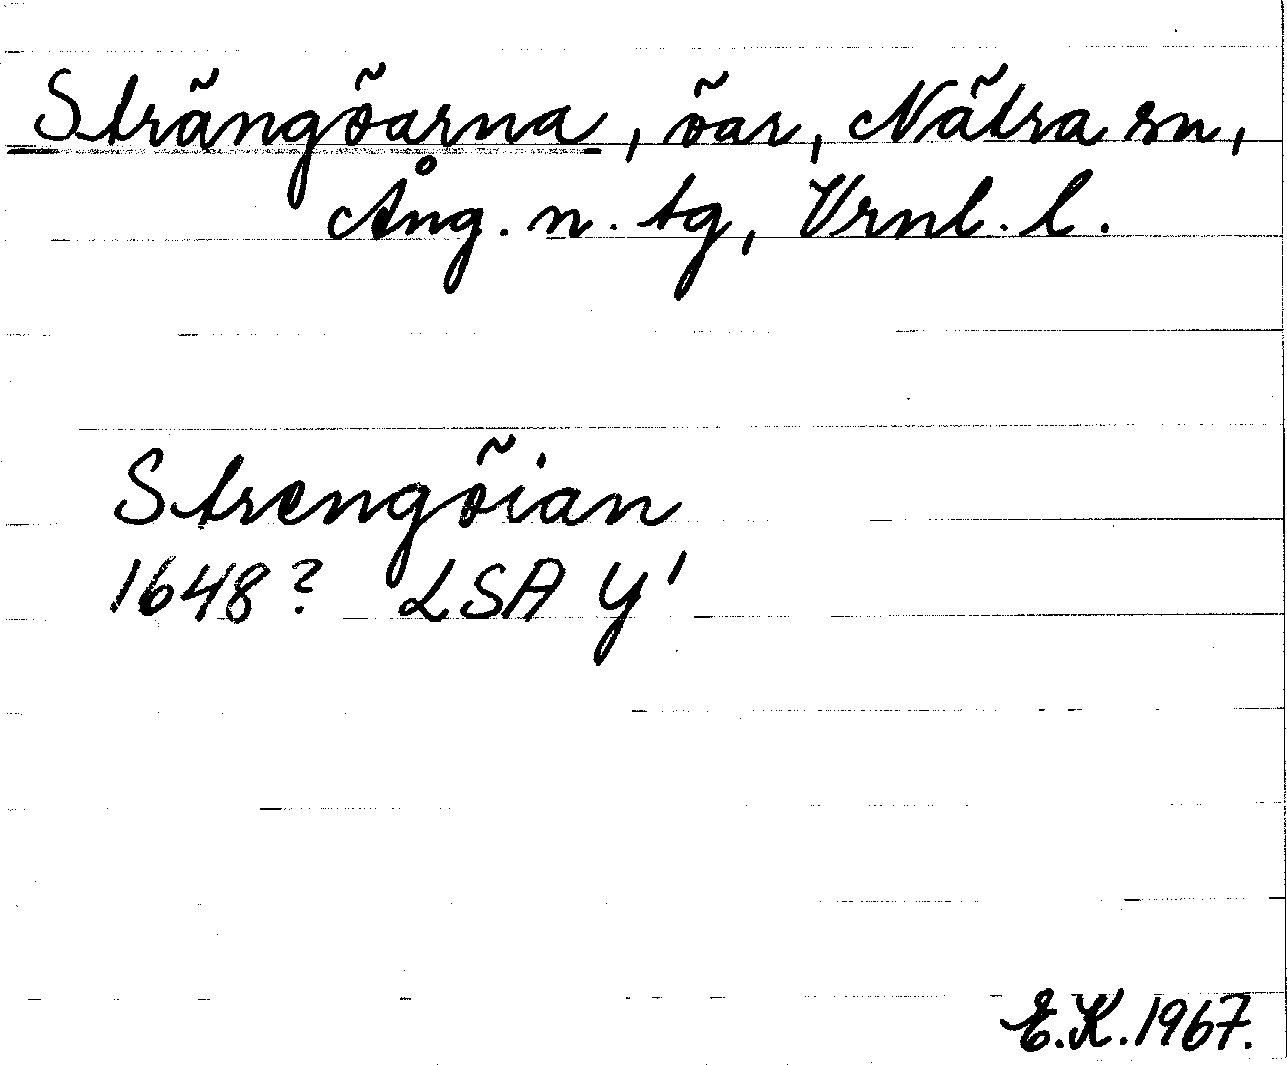 Strängöarna, öar, Nätra sn,
Ång. n. tg, Vrnl. l.
Strengöian
1648? LSA Y'
E.K.1967.